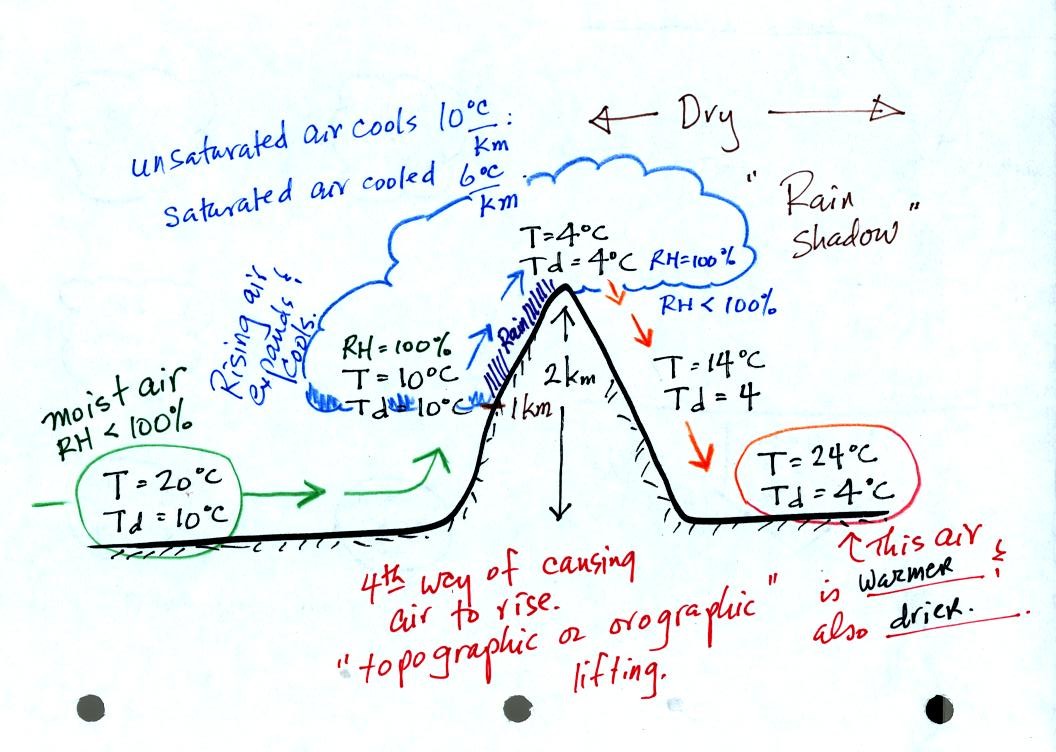 unsaturated air cools 10°C/km :
saturated air cooled 6°C/km .
← Dry →
" Rain
shadow "
T=4°C
Td = 4°C RH=100%
RH < 100%
Rising air
expands &
cools.
Rain
RH = 100%
T = 10°C
Td = 10°C
1km
2km
T = 14°C
Td = 4
moist air
RH < 100%
T = 20°C
Td = 10°C
T = 24°C
Td = 4°C
4th way of causing
air to rise.
"topographic or orographic"
lifting.
↑ This air
is warmer &
also drier.